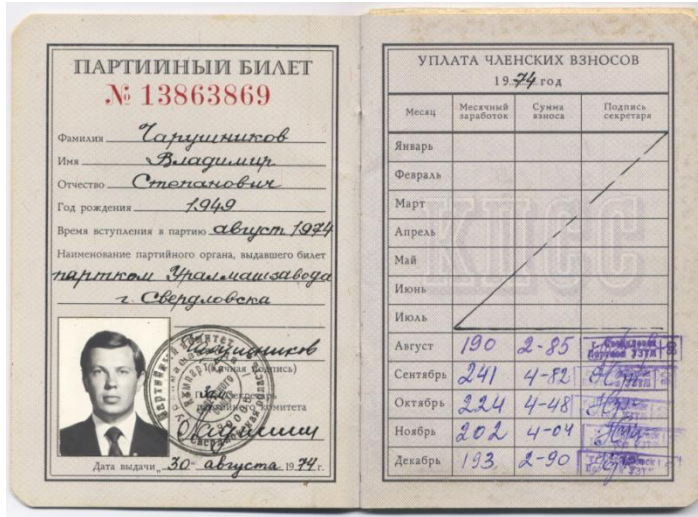 ПАРТИЙНЫЙ БИЛЕТ
№ 13863869
Фамилия Чарушников
Имя Владимир
Отчество Степанович
Год рождения 1949
Время вступления в партию август 1974
Наименование партийного органа, выдавшего билет
партком Уралмашзавода
г. Свердловска
Чарушников
(Личная подпись)
Зам. секретарь
партийного комитета
Дата выдачи „30“ августа 1974 г.
УПЛАТА ЧЛЕНСКИХ ВЗНОСОВ
1974 год
Месяц Месячный заработок Сумма взноса Подпись секретаря
Январь
Февраль
Март
Апрель
Май
Июнь
Июль
Август 190 2-85
Сентябрь 241 4-82
Октябрь 224 4-48
Ноябрь 202 4-04
Декабрь 193 2-90
КПСС